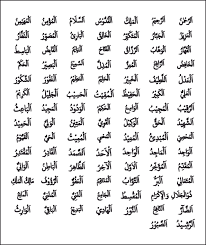 الرَّحْمَنُ الرَّحِيمُ الْمَلِكُ الْقُدُّوسُ السَّلَامُ الْمُؤْمِنُ الْمُهَيْمِنُ
الْعَزِيزُ الْجَبَّارُ الْمُتَكَبِّرُ الْخَالِقُ الْبَارِئُ الْمُصَوِّرُ الْغَفَّارُ
الْقَهَّارُ الْوَهَّابُ الرَّزَّاقُ الْفَتَّاحُ الْعَلِيمُ الْقَابِضُ الْبَاسِطُ
الْخَافِضُ الرَّافِعُ الْمُعِزُّ الْمُذِلُّ السَّمِيعُ الْبَصِيرُ الْحَكَمُ
الْعَدْلُ اللَّطِيفُ الْخَبِيرُ الْحَلِيمُ الْعَظِيمُ الْغَفُورُ الشَّكُورُ
الْعَلِيُّ الْكَبِيرُ الْحَفِيظُ الْمُقِيتُ الْحَسِيبُ الْجَلِيلُ الْكَرِيمُ
الرَّقِيبُ الْمُجِيبُ الْوَاسِعُ الْحَكِيمُ الْوَدُودُ الْمَجِيدُ الْبَاعِثُ
الشَّهِيدُ الْحَقُّ الْوَكِيلُ الْقَوِيُّ الْمَتِينُ الْوَلِيُّ الْحَمِيدُ
الْمُحْصِي الْمُبْدِئُ الْمُعِيدُ الْمُحْيِي الْمُمِيتُ الْحَيُّ الْقَيُّومُ
الْوَاجِدُ الْمَاجِدُ الْوَاحِدُ الْأَحَدُ الصَّمَدُ الْقَادِرُ الْمُقْتَدِرُ
الْمُقَدِّمُ الْمُؤَخِّرُ الْأَوَّلُ الْآخِرُ الظَّاهِرُ الْبَاطِنُ الْوَالِي
الْمُتَعَالِي الْبَرُّ التَّوَّابُ الْمُنْتَقِمُ الْعَفُوُّ الرَّؤُوفُ مَالِكُ الْمُلْكِ
ذُو الْجَلَالِ وَالْإِكْرَامِ الْمُقْسِطُ الْجَامِعُ الْغَنِيُّ الْمُغْنِي الْمَانِعُ
الضَّارُّ النَّافِعُ النُّورُ الْهَادِي الْبَدِيعُ الْبَاقِي الْوَارِثُ
الرَّشِيدُ الصَّبُورُ